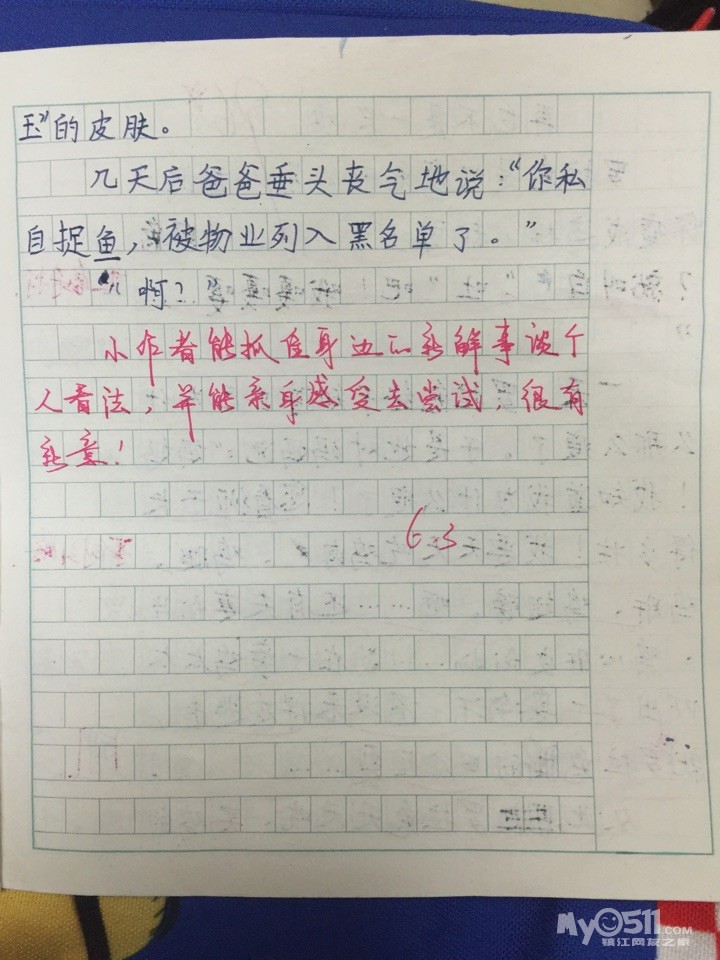 玉”的皮肤。
几天后爸爸垂头丧气地说：“你私
自捉鱼，被物业列入黑名单了。”
“啊？”
小作者能抓住身边的新鲜事谈个
人看法，并能亲身感受去尝试，很有
新意！
6.3
My0511.COM
镇江网友之家